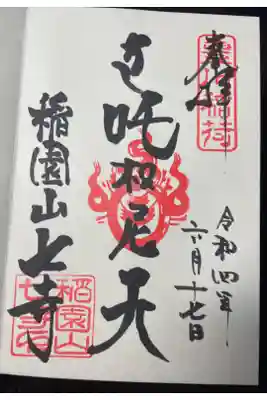 奉拝
稲荷
令和四年
六月十七日
吒枳尼天
稲園山七寺
稲園山
七寺